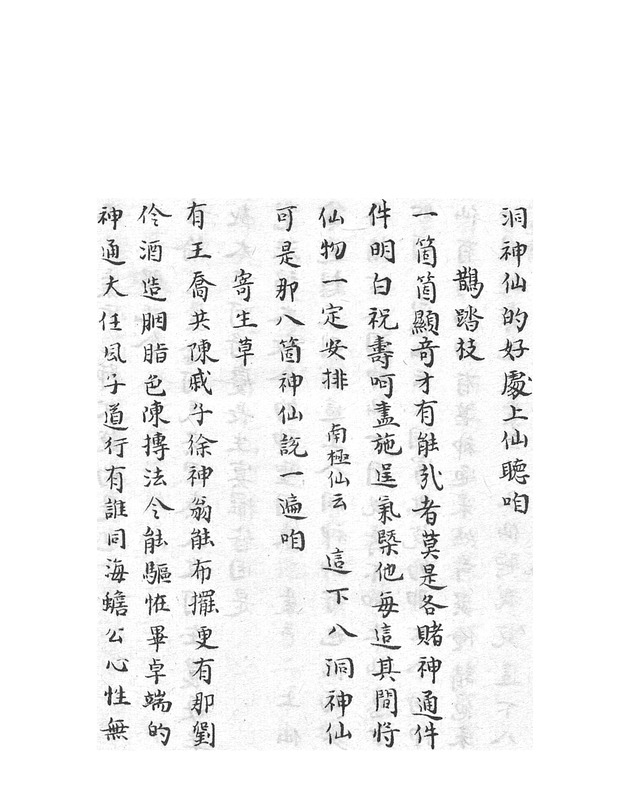 洞神仙的好處上仙聽咱
鵲踏枝
一箇箇顯竒才有能㢤者莫是各賭神通件
件明白祝壽呵盡施逞氣槩他每這其間将
仙物一定安排 南極仙云 這下八洞神仙
可是那八箇神仙説一遍咱
寄生草
有王喬共陳戚子徐神翁能布擺更有那劉
伶酒造胭脂色陳摶法令能驅恠畢卓端的
神通大任風子道行有誰同海蟾公心性無